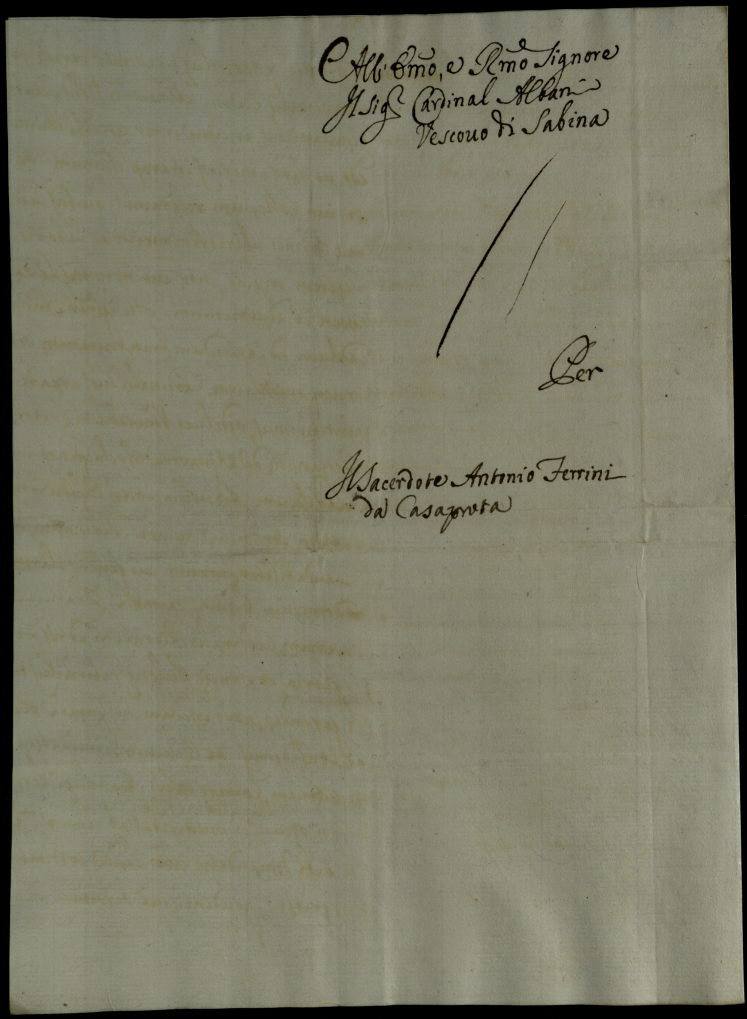 All' Em̃o, e Rm̃o Signore
Il Sigr Cardinal Albani
Vescovo di Sabina
Per
Il Sacerdote Antonio Ferrini
da Casaprota